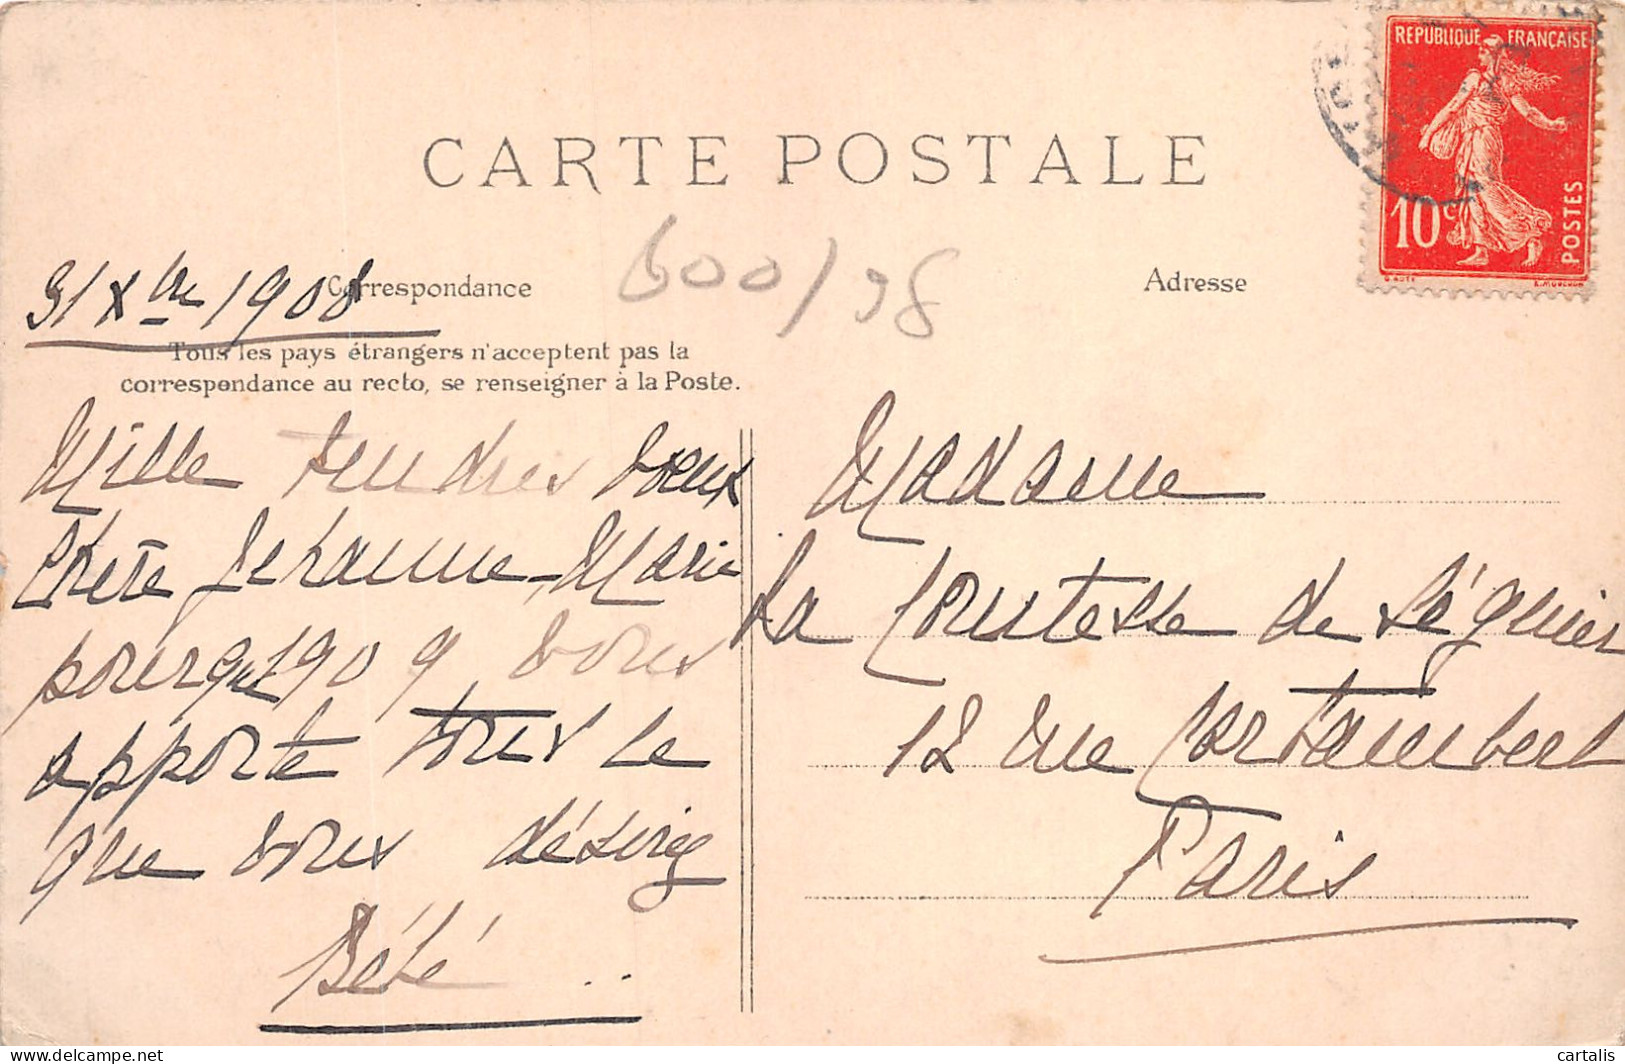 CARTE POSTALE
REPUBLIQUE FRANÇAISE
10c
POSTES
600/98
31 Xbre 1908
Correspondance
Adresse
Tous les pays étrangers n'acceptent pas la
correspondance au recto, se renseigner à la Poste.
Mille tendres vœux
Chère Jehanne-Marie
pour que 1909 vous
apporte tous ce
que vous désirez
Bébé
Madame
La Comtesse de Séguier
12 rue Cortambert
Paris
delcampe.net
cartalis